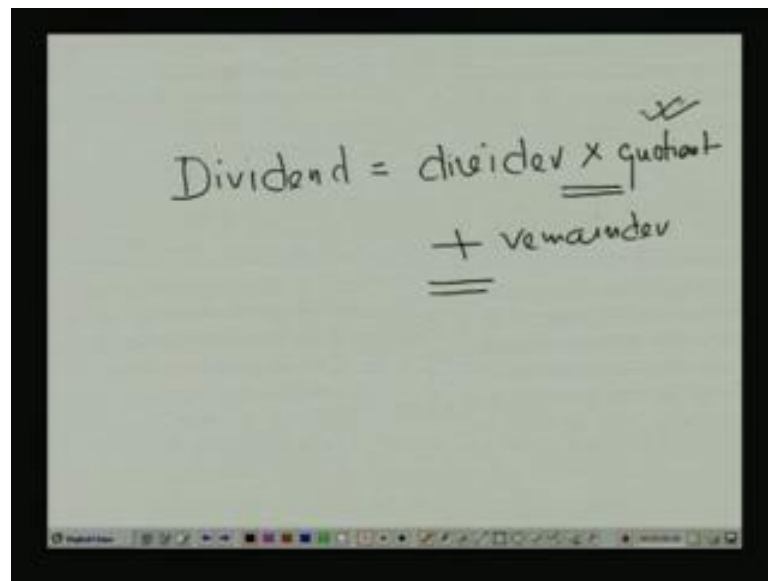 Dividend = divider × quotient
+ remainder